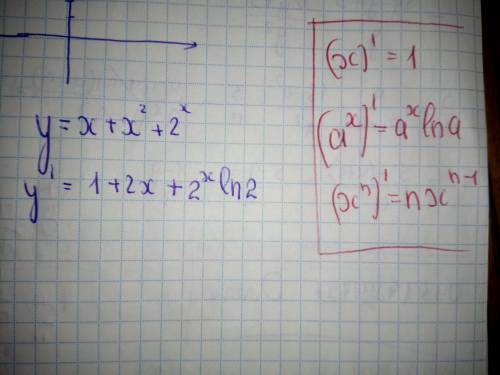 y = x + x² + 2ˣ
y' = 1 + 2x + 2ˣ ln2
(x)' = 1
(aˣ)' = aˣ lna
(xⁿ)' = nxⁿ⁻¹